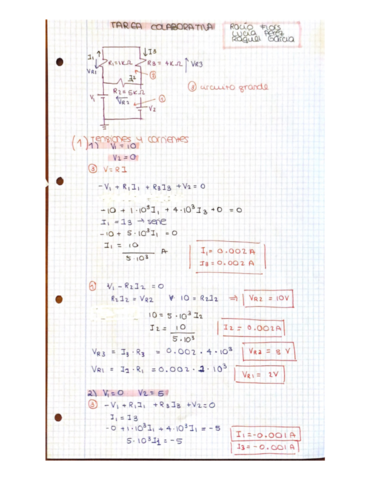 TAREA COLABORATIVA
Rocío Ríos
Lucía Pérez
Raquel García
I1 R1=1KΩ I3 R3=4KΩ VR3
VR1 I2
R2=5KΩ
V1 VR2 V2
circuito grande
(1) Tensiones y corrientes
1) V1=10
V2=0
V=RI
-V1 + R1I1 + R3I3 + V2 = 0
-10 + 1·10³I1 + 4·10³I3 + 0 = 0
I1 = I3 → serie
-10 + 5·10³I1 = 0
I1 = 10 / 5·10³ A
I1 = 0.002 A
I3 = 0.002 A
V1 - R2I2 = 0
R2I2 = VR2 10 = R2I2 ⇒ VR2 = 10V
10 = 5·10³I2
I2 = 10 / 5·10³
I2 = 0.002A
VR3 = I3·R3 = 0.002·4·10³ VR3 = 8 V
VR1 = I1·R1 = 0.002·1·10³ VR1 = 2V
2) V1=0 V2=5
-V1 + R1I1 + R3I3 + V2 = 0
I1 = I3
-0 + 1·10³I1 + 4·10³I1 = -5
5·10³I1 = -5
I1 = -0.001A
I3 = -0.001 A